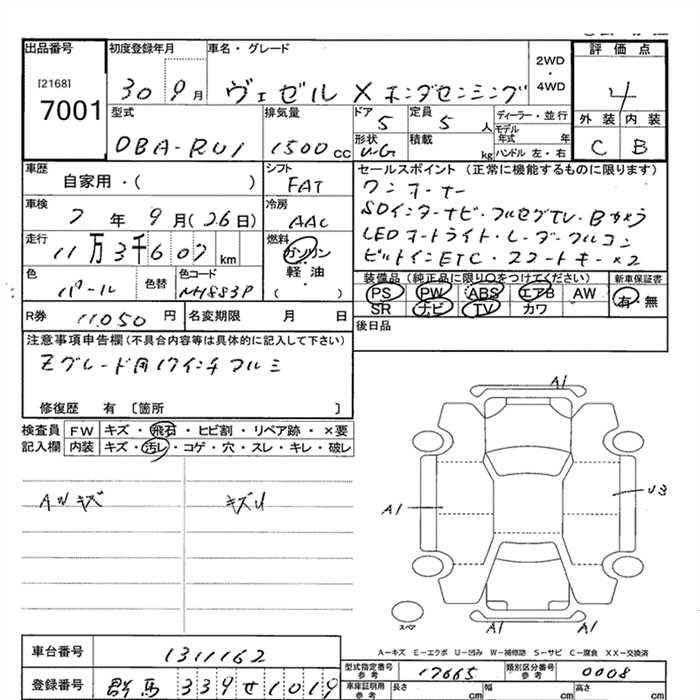 出品番号
[2168]
7001
初度登録年月
30 9月
車名・グレード
ヴェゼル X ホンダセンシング
2WD
・
4WD
評価点
4
外装 内装
C B
型式
DBA-RU1
排気量
1500 CC
ドア
5
定員
5 人
ディーラー・並行
モデル年式 年
形状
積載 kg
ハンドル 左・右
車歴
自家用・( )
シフト
FAT
車検
7年 9月(26日)
冷房
AAC
走行
11万3千607km
燃料
ガソリン
・
軽油
・
( )
色
パール
色替
色コード
NH883P
セールスポイント(正常に機能するものに限ります)
ワンオーナー
SDインターナビ・フルセグTV・Bカメラ
LEDオートライト・L-ダークルコン
ビルトインETC・スマートキー×2
装備品(純正品に限り〇をつけてください) 新車保証書
PS PW ABS エアB AW 有・無
SR ナビ TV カワ
後日品
R券 11,050 円
名変期限 月 日
注意事項申告欄(不具合内容等は具体的に記入して下さい)
Zグレード用17インチアルミ
修復歴 有〔箇所 〕
検査員 FW キズ・飛石・ヒビ割・リペア跡・×要
記入欄 内装 キズ・汚レ・コゲ・穴・スレ・キレ・破レ
Aツメキズ
キズU
A1
A1
U3
スペア
A1
A1
A-キズ E-エクボ U-凹み W-補修跡 S-サビ C-腐食 XX-交換済
車台番号 1311162
登録番号 群馬 339 せ 1019
型式指定番号参考 17665
類別区分番号参考 0008
車庫証明用参考 長さ cm 幅 cm 高さ cm